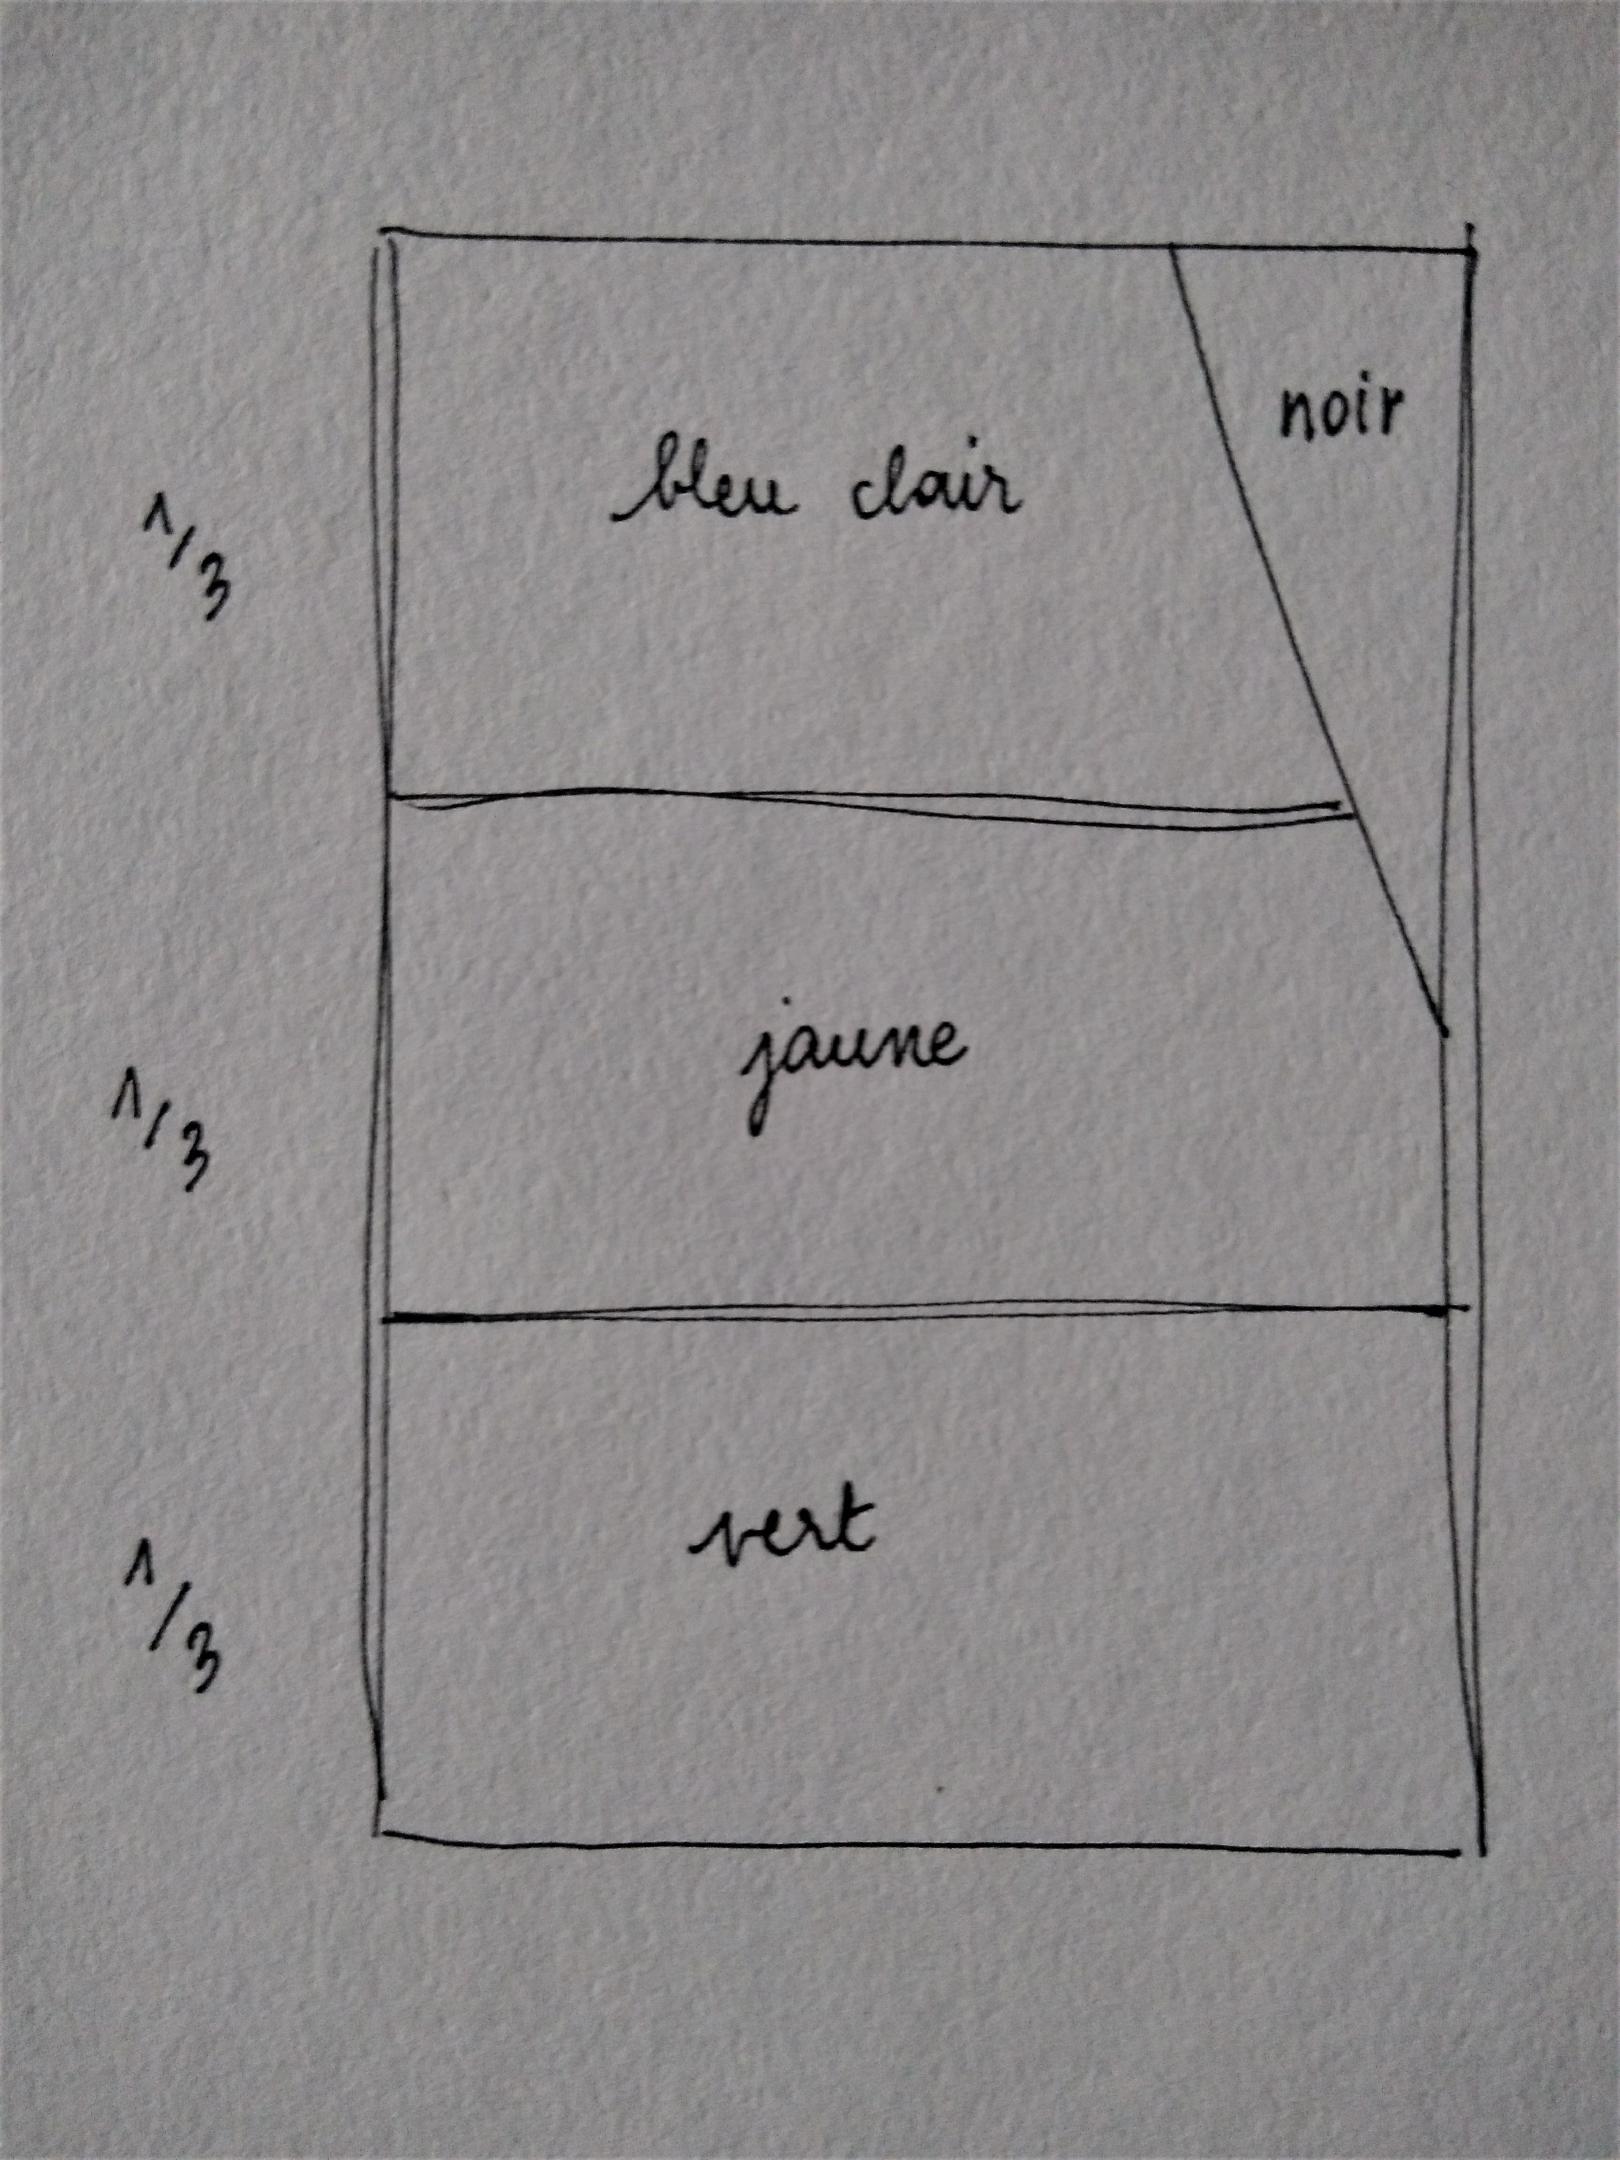 noir
bleu clair
1/3
jaune
1/3
vert
1/3